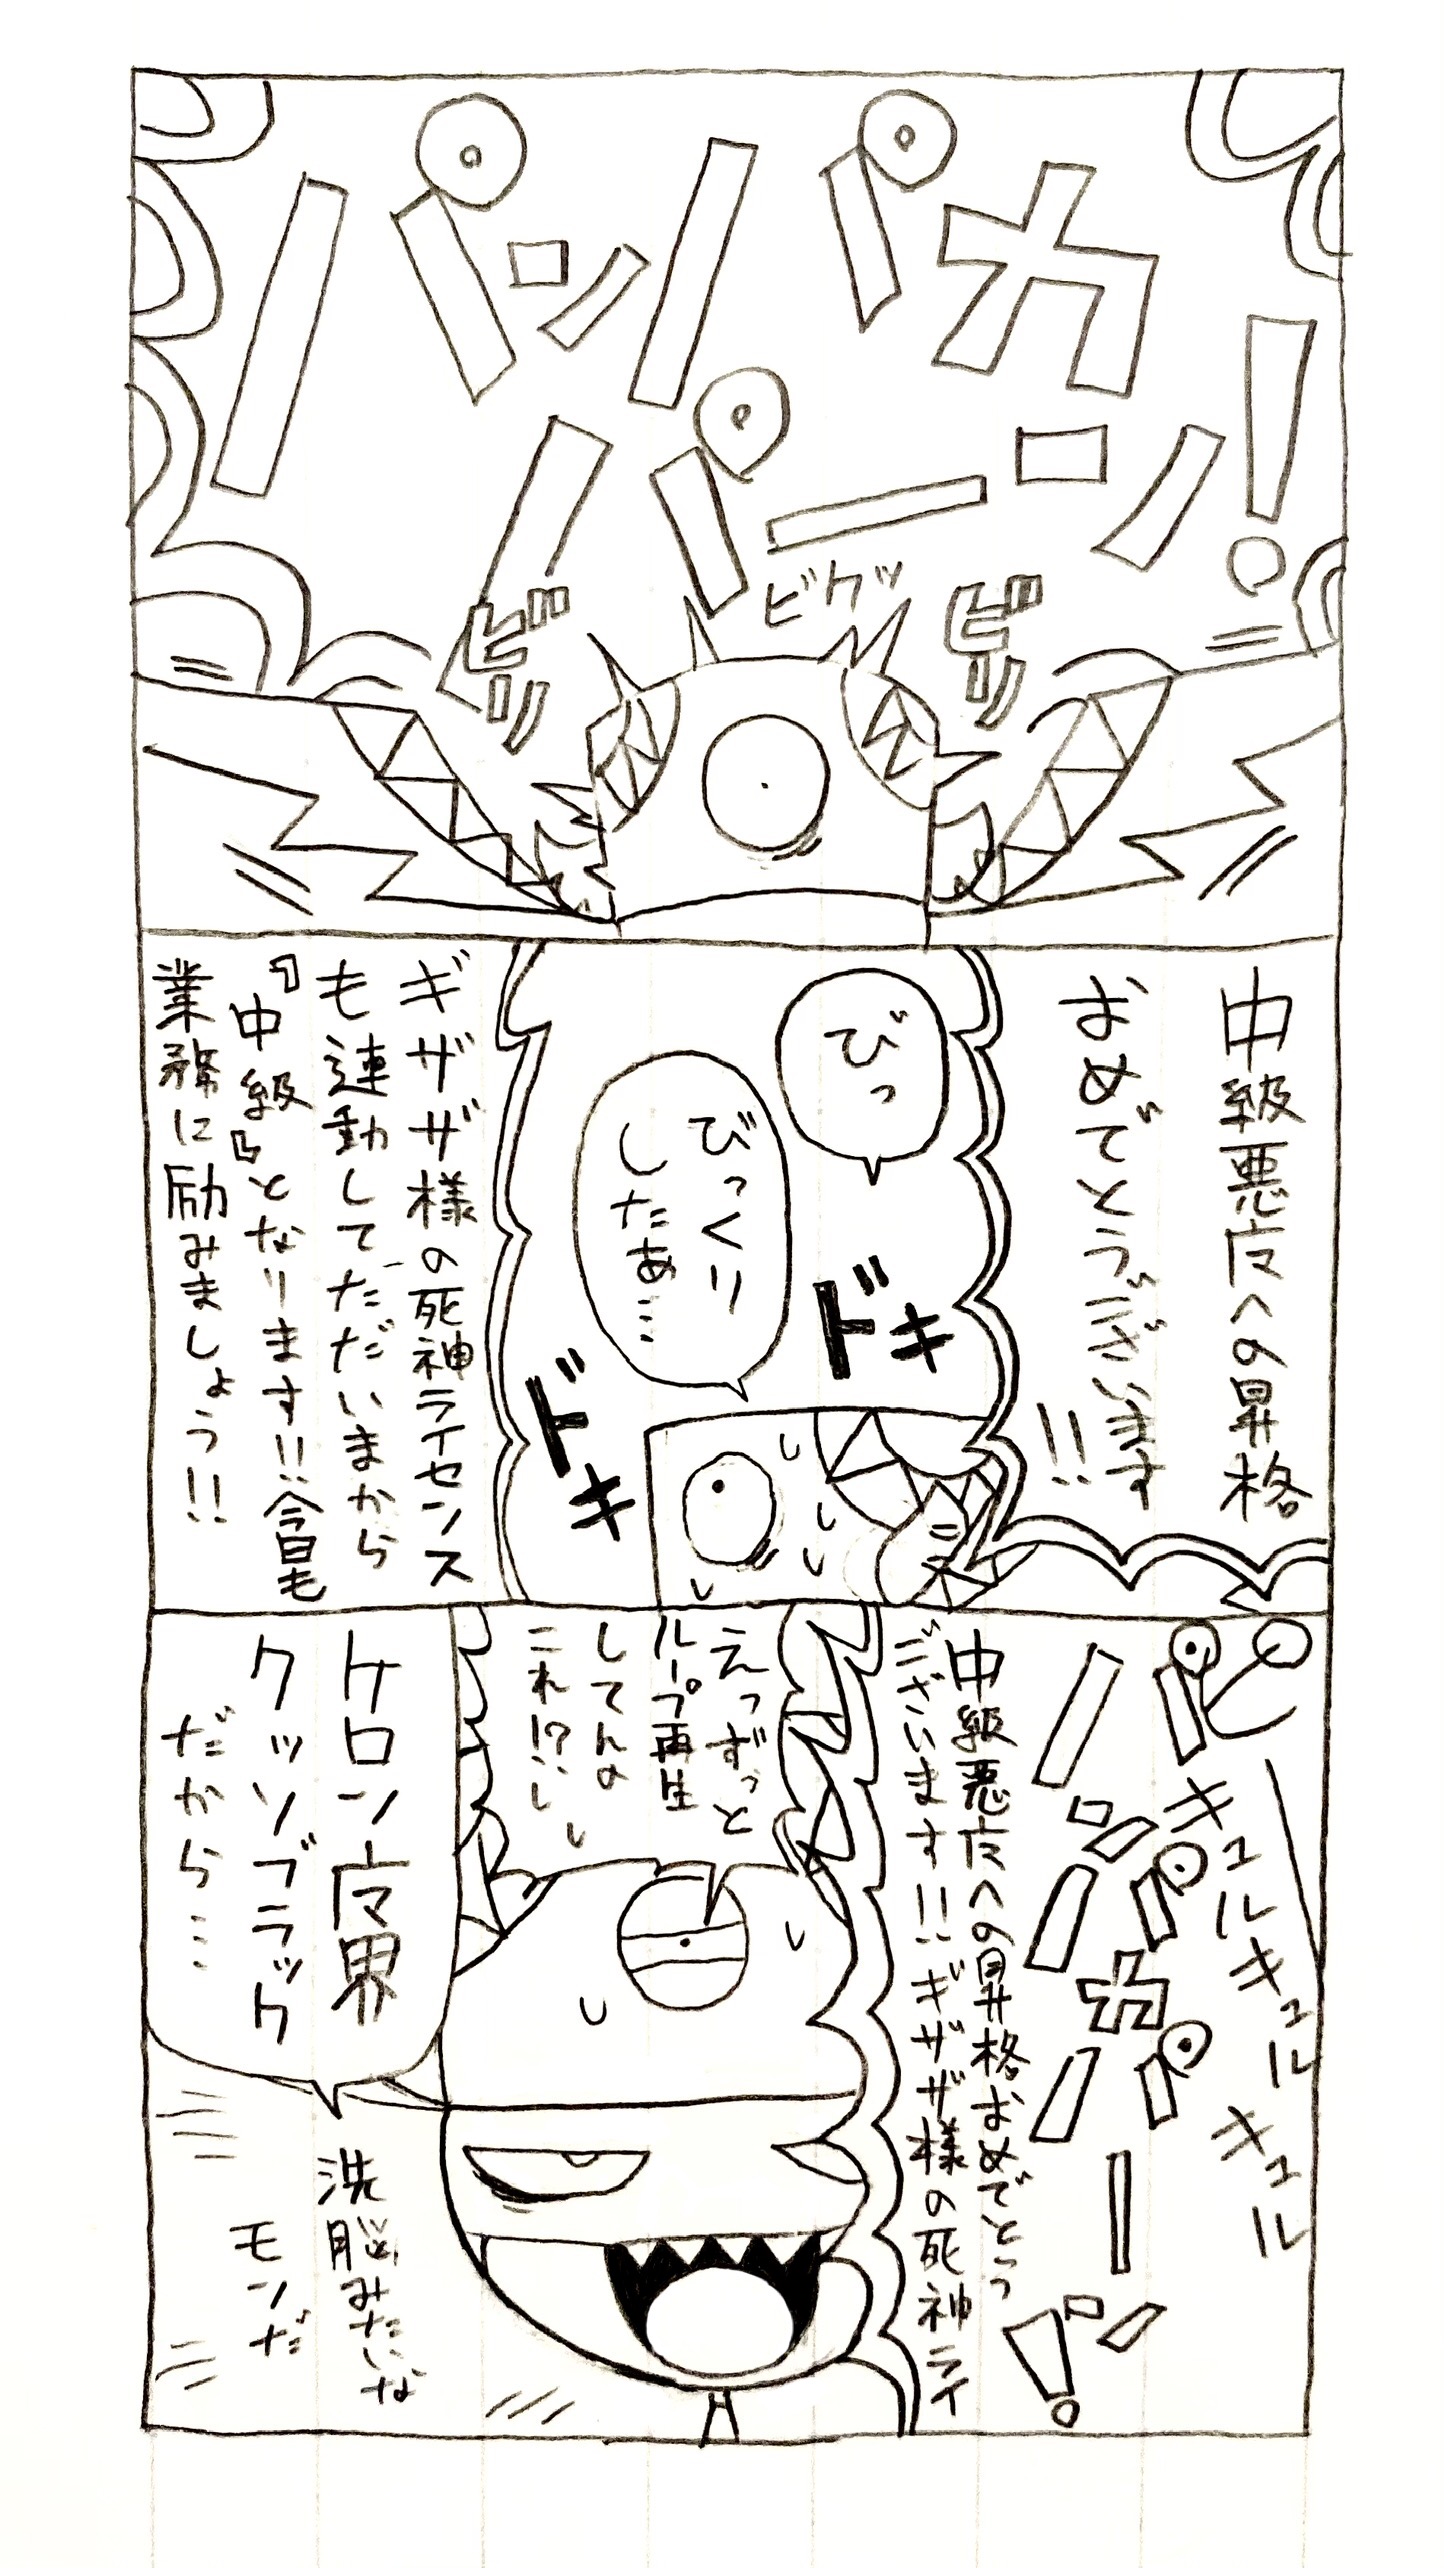 パンパカ
パーン!
ビクッ
ビリ
ビリ
中級悪魔への昇格
おめでとうございます
!!
びっ
びっくり
したぁ…
ドキ
ドキ
ギザザ様の死神ライセンス
も連動してただいまから
『中級』となります!!今日も
業務に励みましょう!!
キュルキュル
キュル
パンパカパーン!
中級悪魔への昇格おめでとう
ございます!!ギザザ様の死神ライ
えっずっと
ループ再生
してんの
これ!?
ケロン魔界
クッソブラック
だから…
洗脳みたいな
モンだ